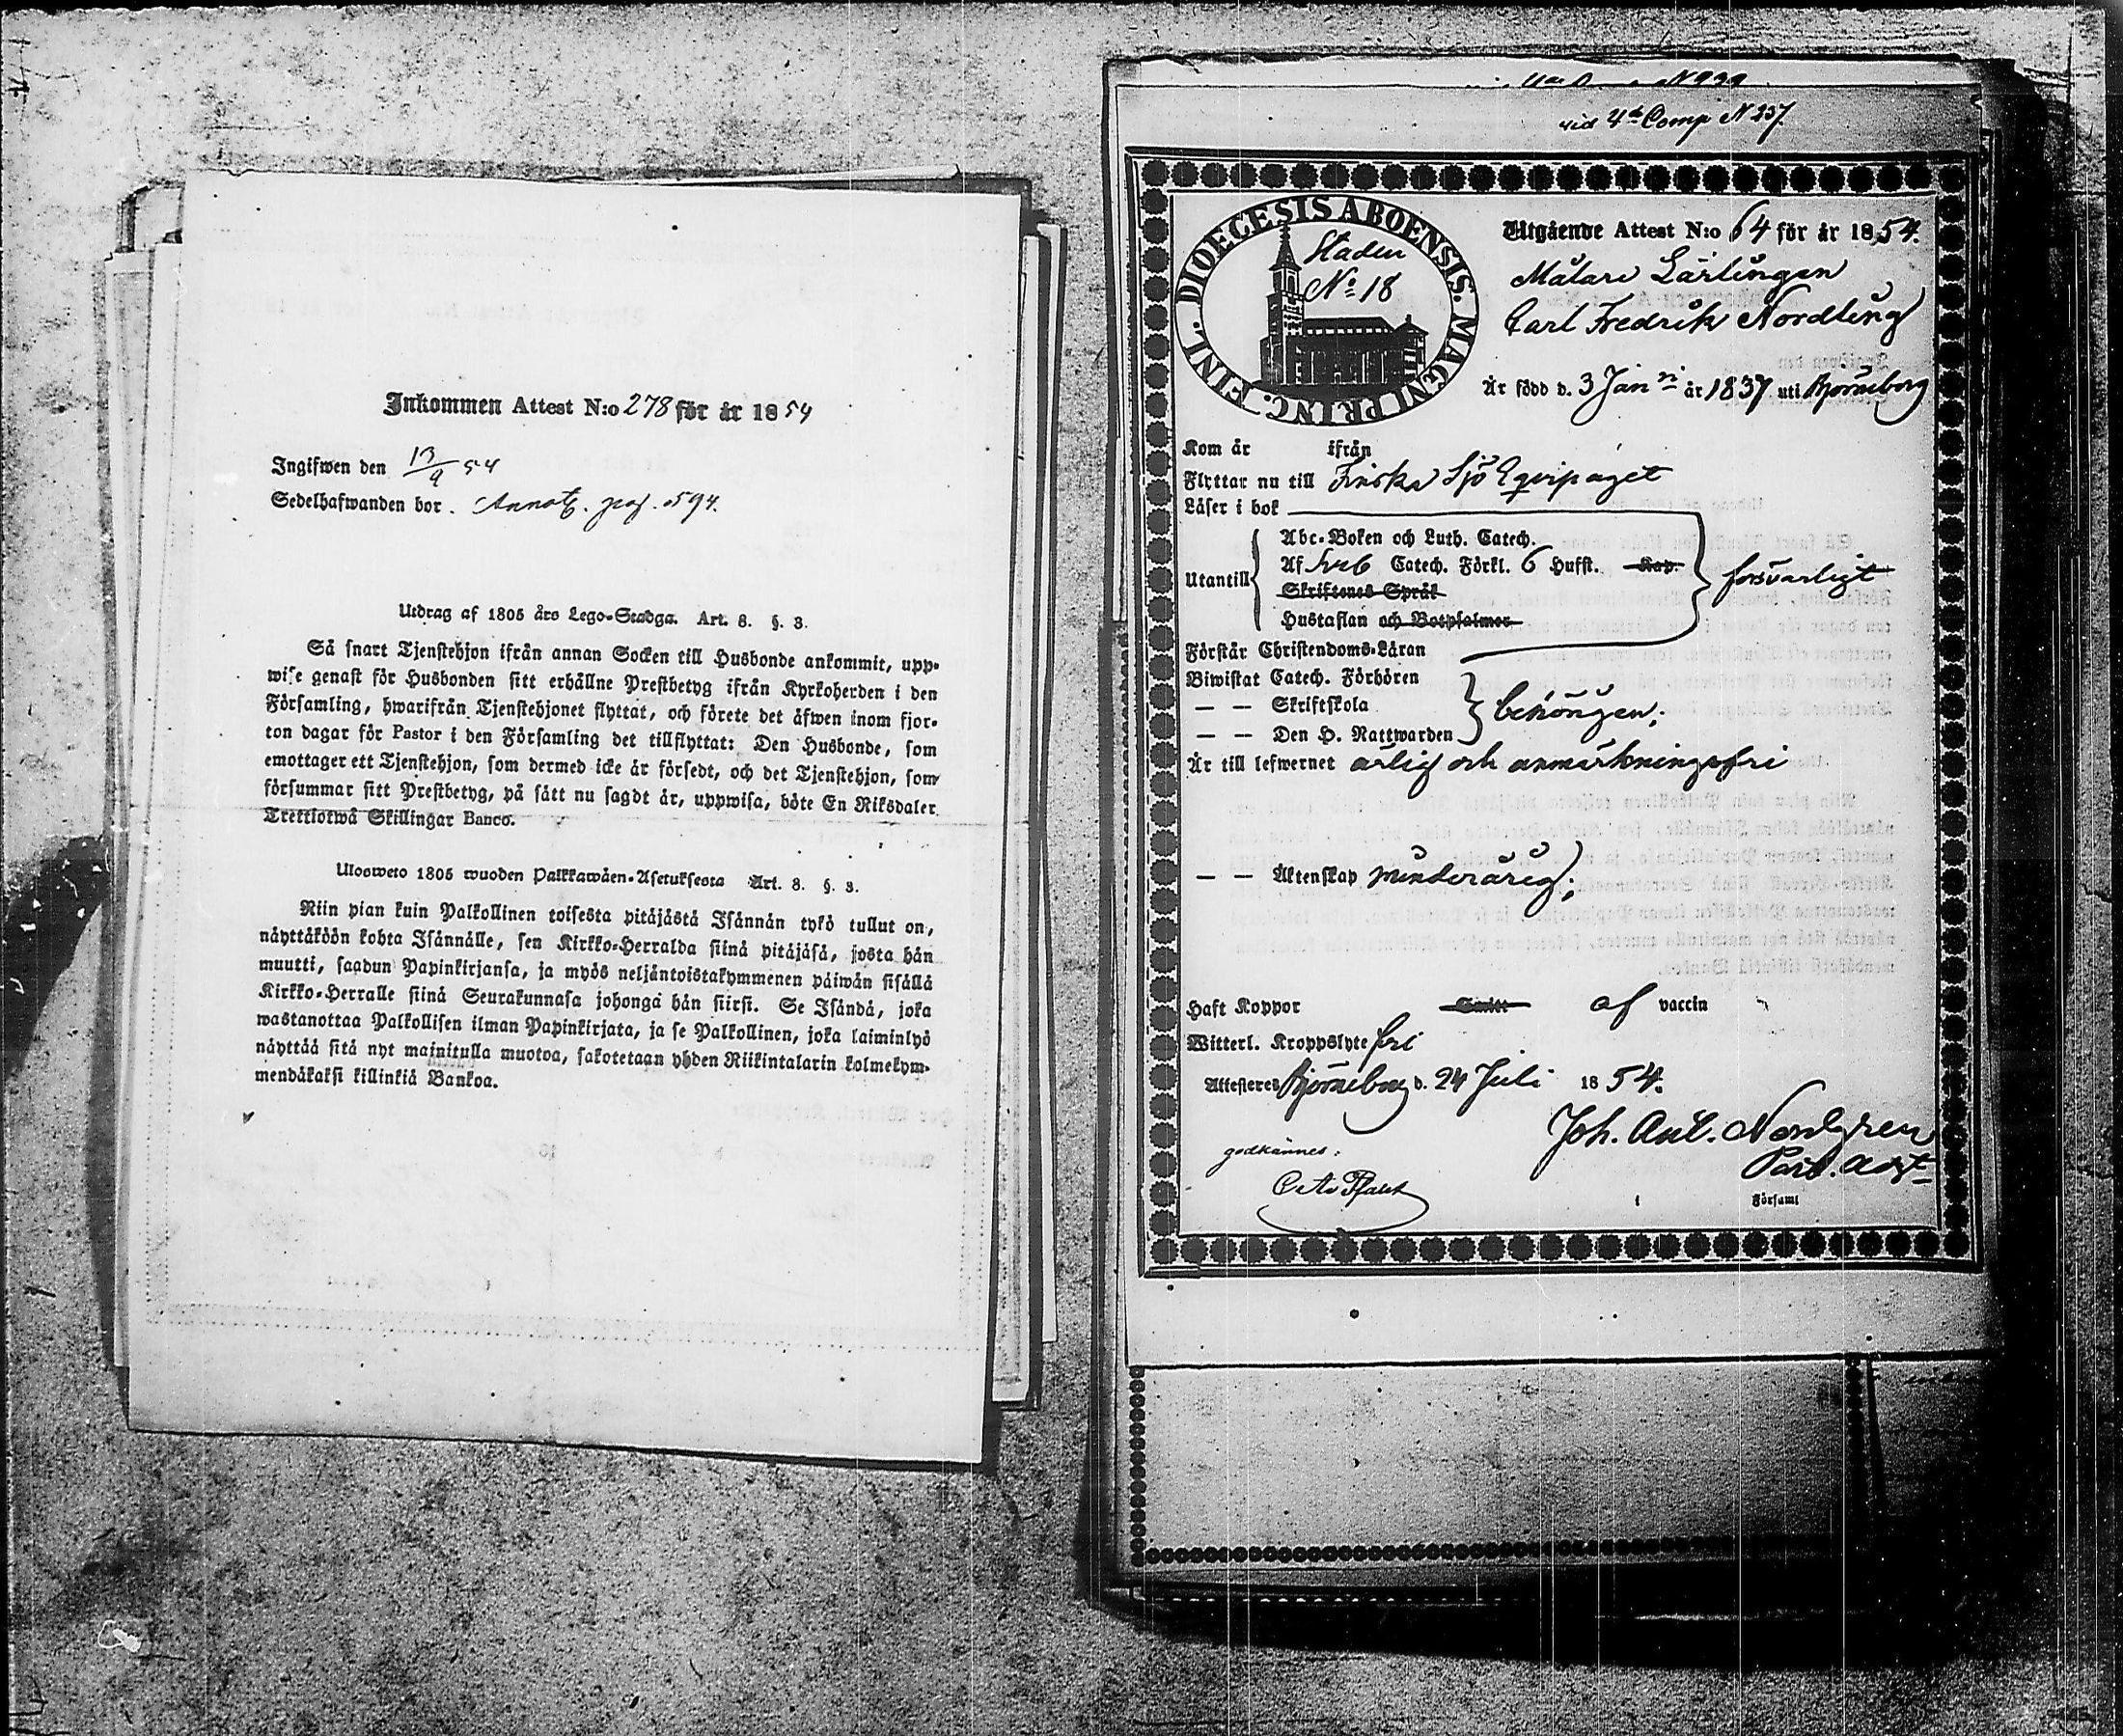 Inkommen Attest N:o 278 för år 1854
Ingifwen den 13/9 54
Sedelhafwanden bor. Annotb. pag. 594.
Utdrag af 1805 års Lego-Stadga. Art. 8. §. 3.
Så snart Tjenstehjon ifrån annan Socken till Husbonde ankommit, upp-
wise genast för Husbonden sitt erhållne Prestbetyg ifrån Kyrkoherden i den
Församling, hwarifrån Tjenstehjonet flyttat, och förete det äfwen inom fjor-
ton dagar för Pastor i den Församling det tillflyttat: Den Husbonde, som
emottager ett Tjenstehjon, som dermed icke är försedt, och det Tjenstehjon, som
försummar sitt Prestbetyg, på sätt nu sagdt är, uppwisa, böte En Riksdaler
Trettiotwå Skillingar Banco.
Ulosweto 1805 wuoden Palkkawäen-Asetuksesta Art. 8. §. 3.
Niin pian kuin Palkollinen toisesta pitäjästä Isännän tykö tullut on,
näyttäköön kohta Isännälle, sen Kirkko-Herralda siinä pitäjäsä, josta hän
muutti, saadun Papinkirjansa, ja myös neljäntoistakymmenen päiwän sisällä
Kirkko-Herralle siinä Seurakunnasa johonga hän siirsi. Se Isändä, joka
wastanottaa Palkollisen ilman Papinkirjata, ja se Palkollinen, joka laiminlyö
näyttää sitä nyt mainitulla muotoa, sakotetaan yhden Riikintalarin kolmekym-
mendäkaksi killinkiä Bankoa.
vid 4de Comp N 237.
DIOECESIS ABOENSIS. MAGNI PRINC. FINL.
Staden
No 18
Utgående Attest N:o 64 för år 1854.
Målare Lärlingen
Carl Fredrik Nordling
Är född d. 3 Januari år 1837 uti Björneborg
Kom år ifrån
Flyttar nu till Finska Sjö Eqvipaget
Läser i bok
Abc-Boken och Luth. Catech.
Utantill Af Sveb Catech. Förkl. 6 Hufst. Kap. försvarligt
Skriftenes Språk
Hustaflan och Botpsalmer
Förstår Christendoms-Läran
Biwistat Catech. Förhören
— — Skriftskola behörigen;
— — Den H. Nattwarden
Är till lefwernet ärlig och anmärkningsfri
— — Äktenskap minderårig;
Haft Koppor Smitt af vaccin
Witterl. Kroppslyte fri
Attesteres Björneborg d. 24 Juli 1854.
Joh. Ant. Nordgren
Past. Adjt
godkännes:
i Församl